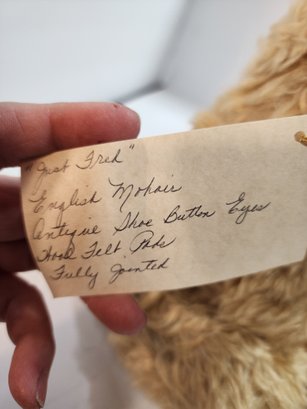 "Just Fred"
English Mohair
Antique Shoe Button Eyes
Wool Felt Pads
Fully Jointed